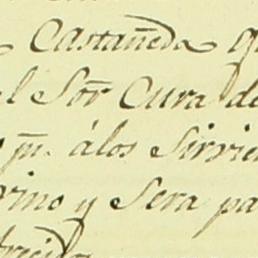 Castañeda q
el Sor. Cura de
pa. álos Sirvie
rino y Sera pa
frecida